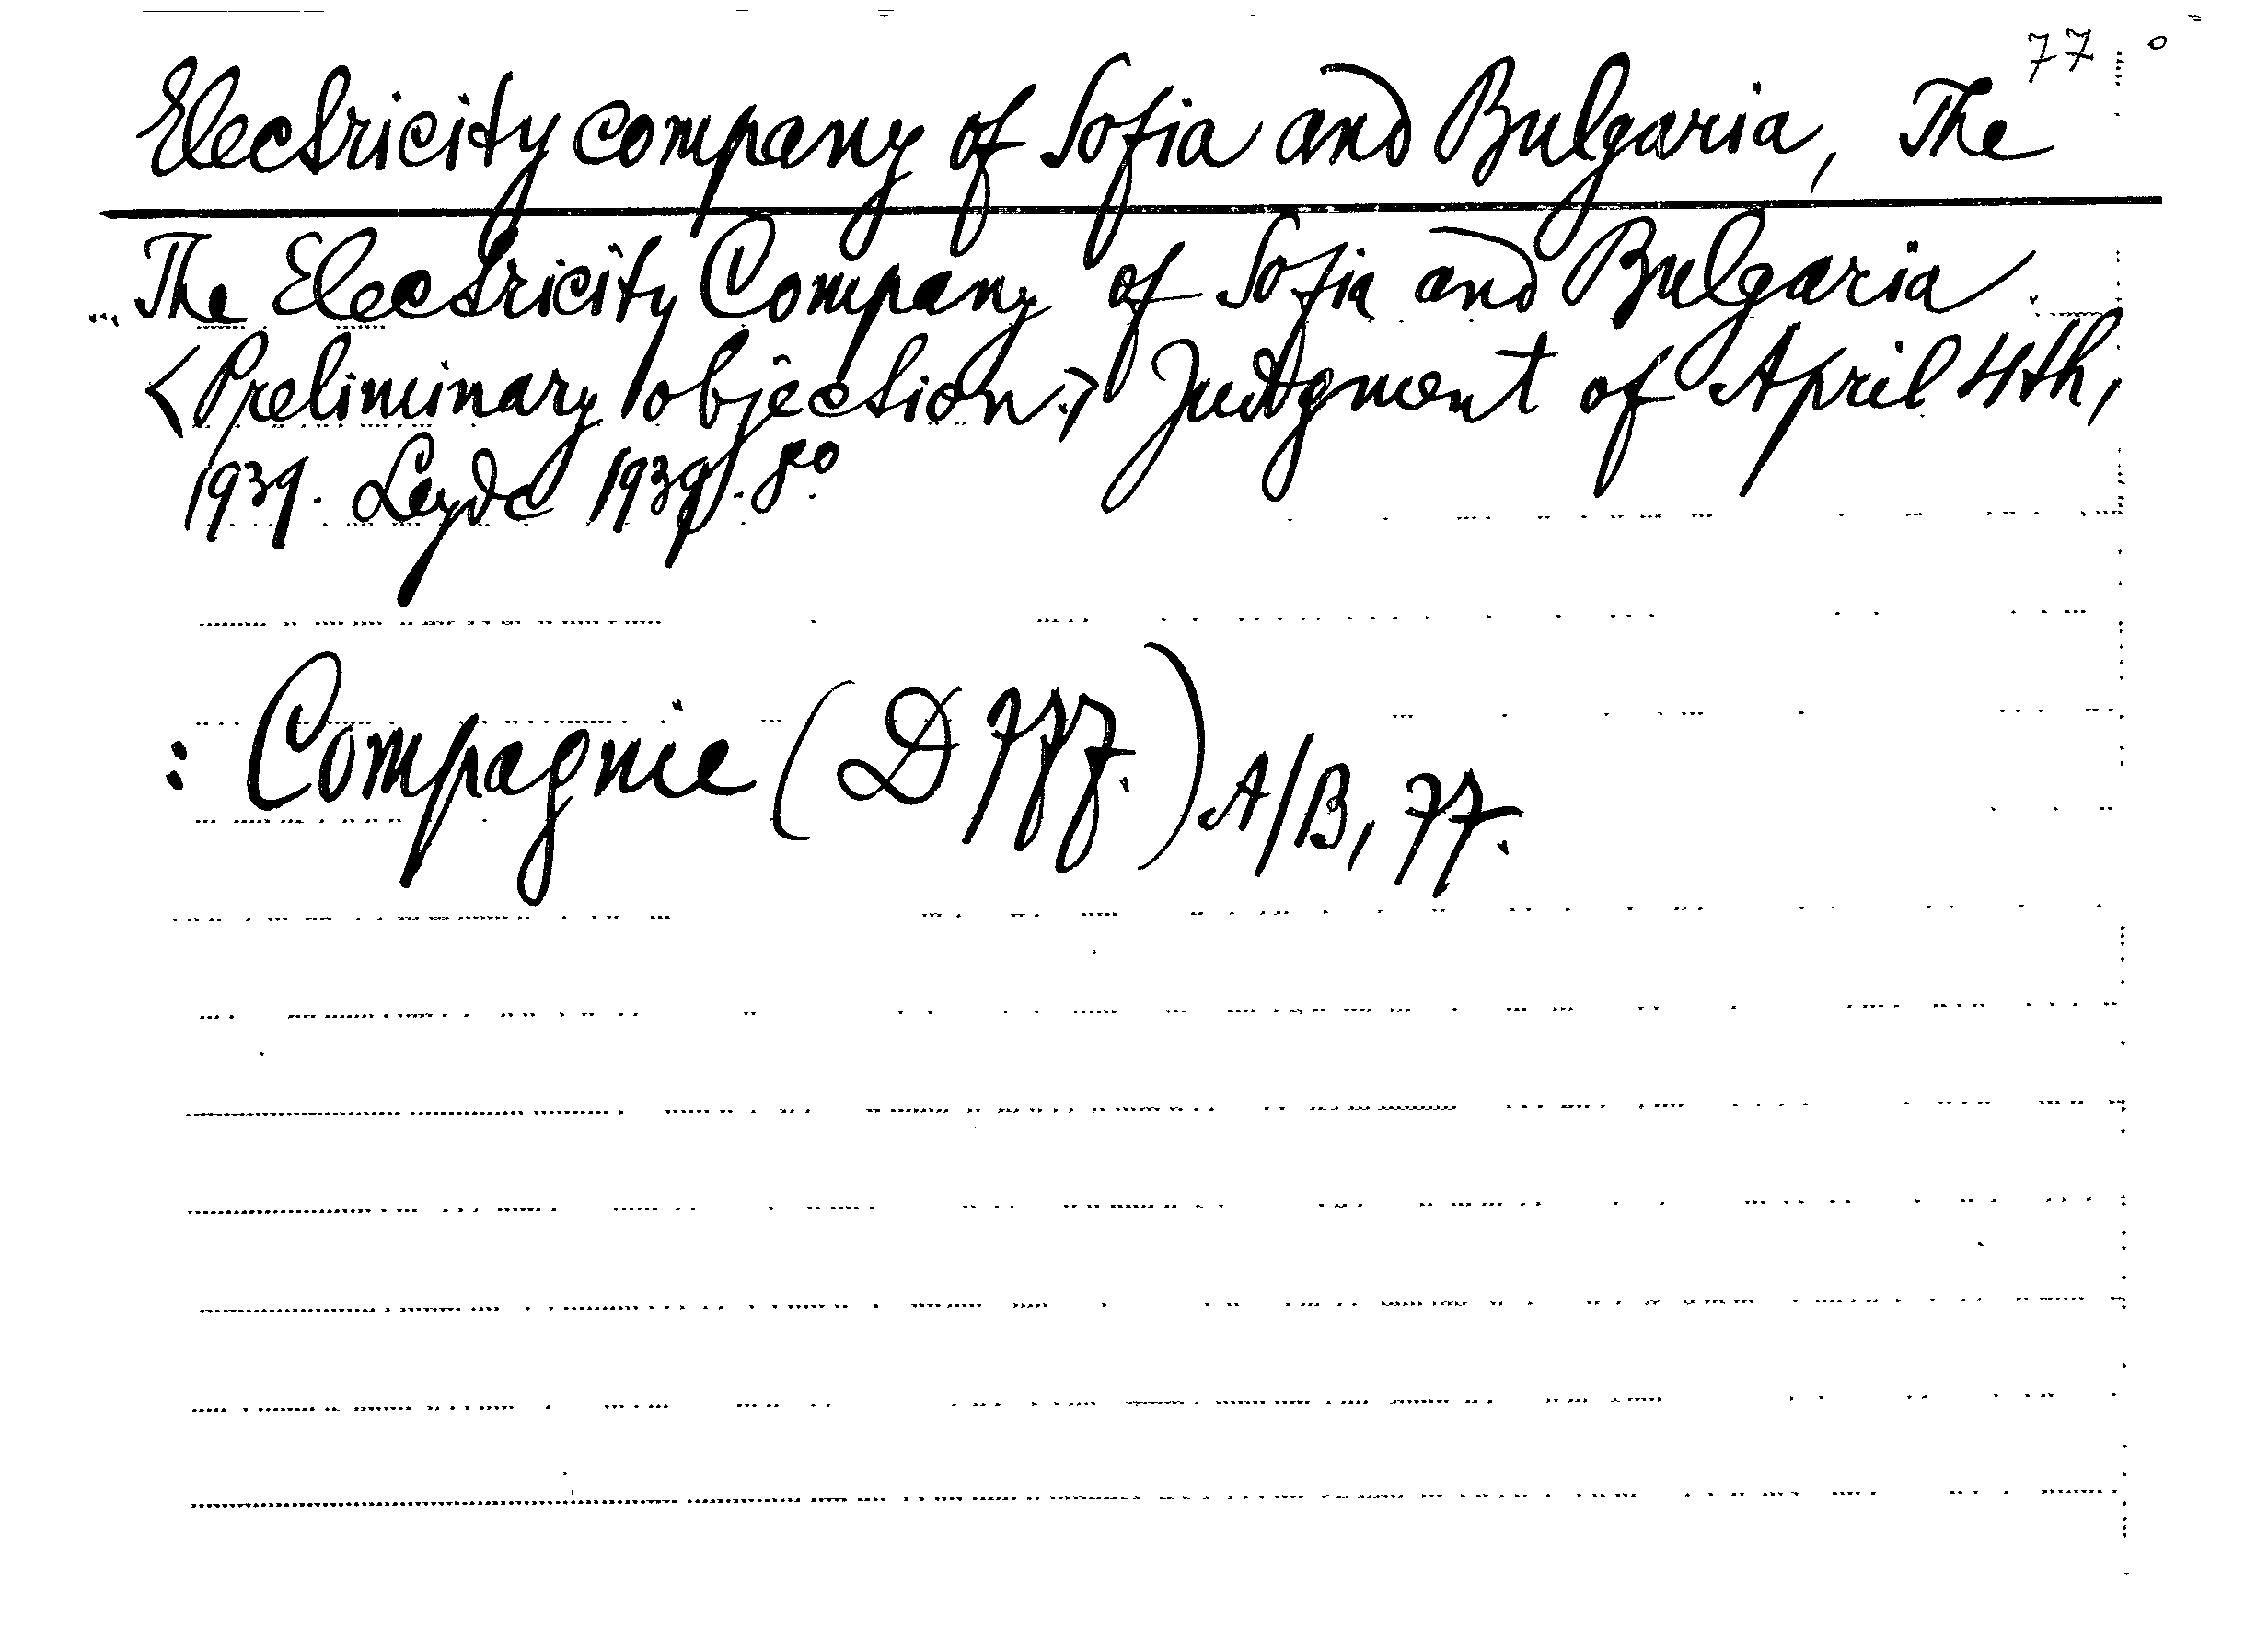 77
Electricity company of Sofia and Bulgaria, The
The Electricity Company of Sofia and Bulgaria
<Preliminary objection.> Judgment of April 4th,
1939. Leyde 1939. 8o
: Compagnie (D 777.) A/B, 77.